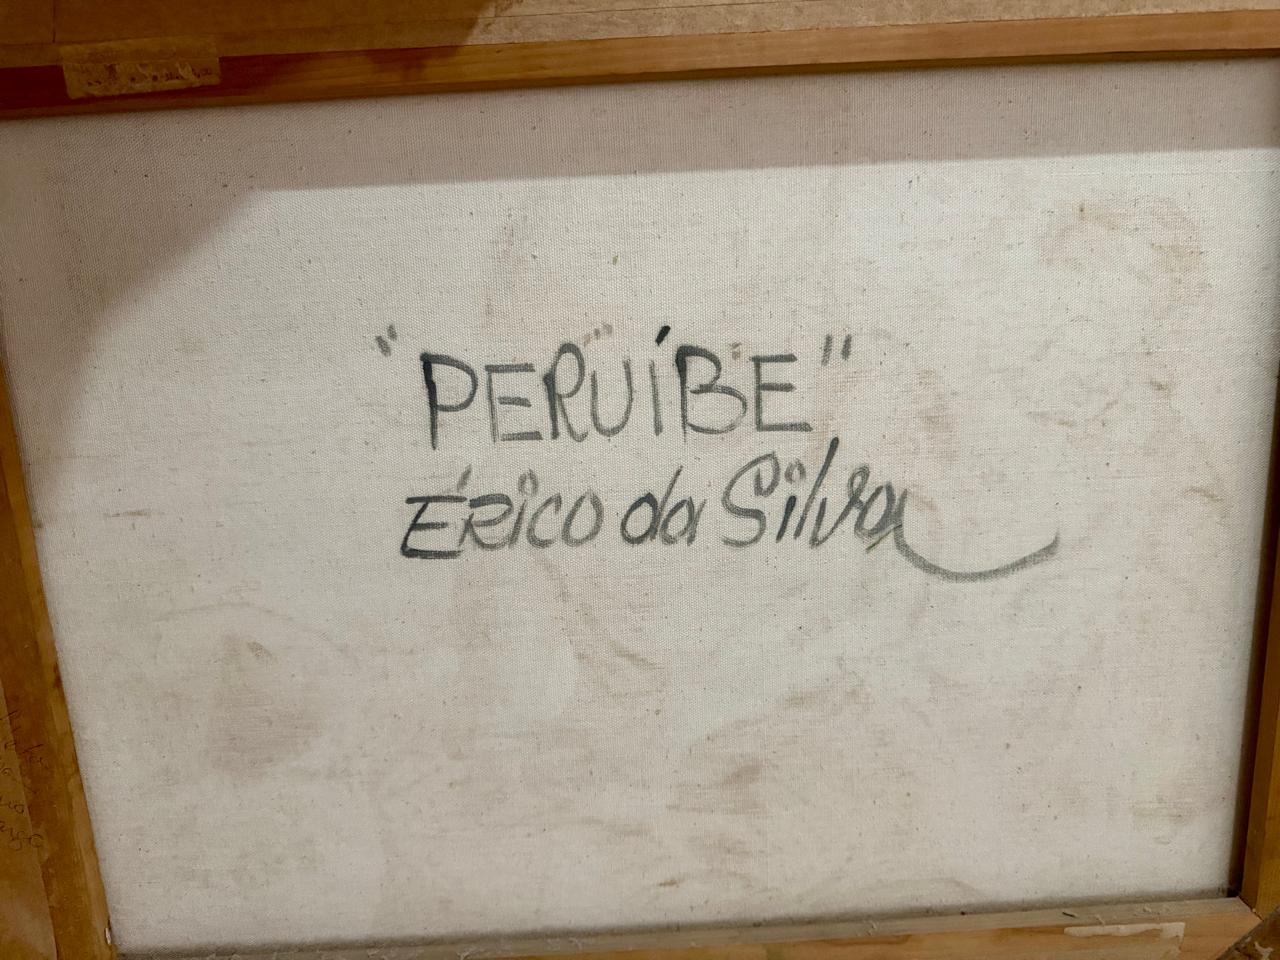 "PERUÍBE"
Érico da Silva